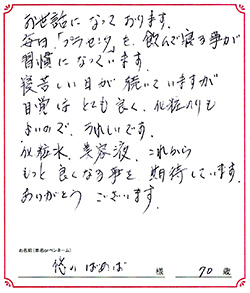 お世話になっております。
毎日「プラセンタ」を飲んで寝る事が
習慣になっています。
寝苦しい日が続いていますが
目覚はとても良く、化粧のりも
よいので、うれしいです。
化粧水、美容液、これから
もっと良くなる事を期待しています。
ありがとうございます。
お名前(本名orペンネーム)
悠のばあば 様 70 歳